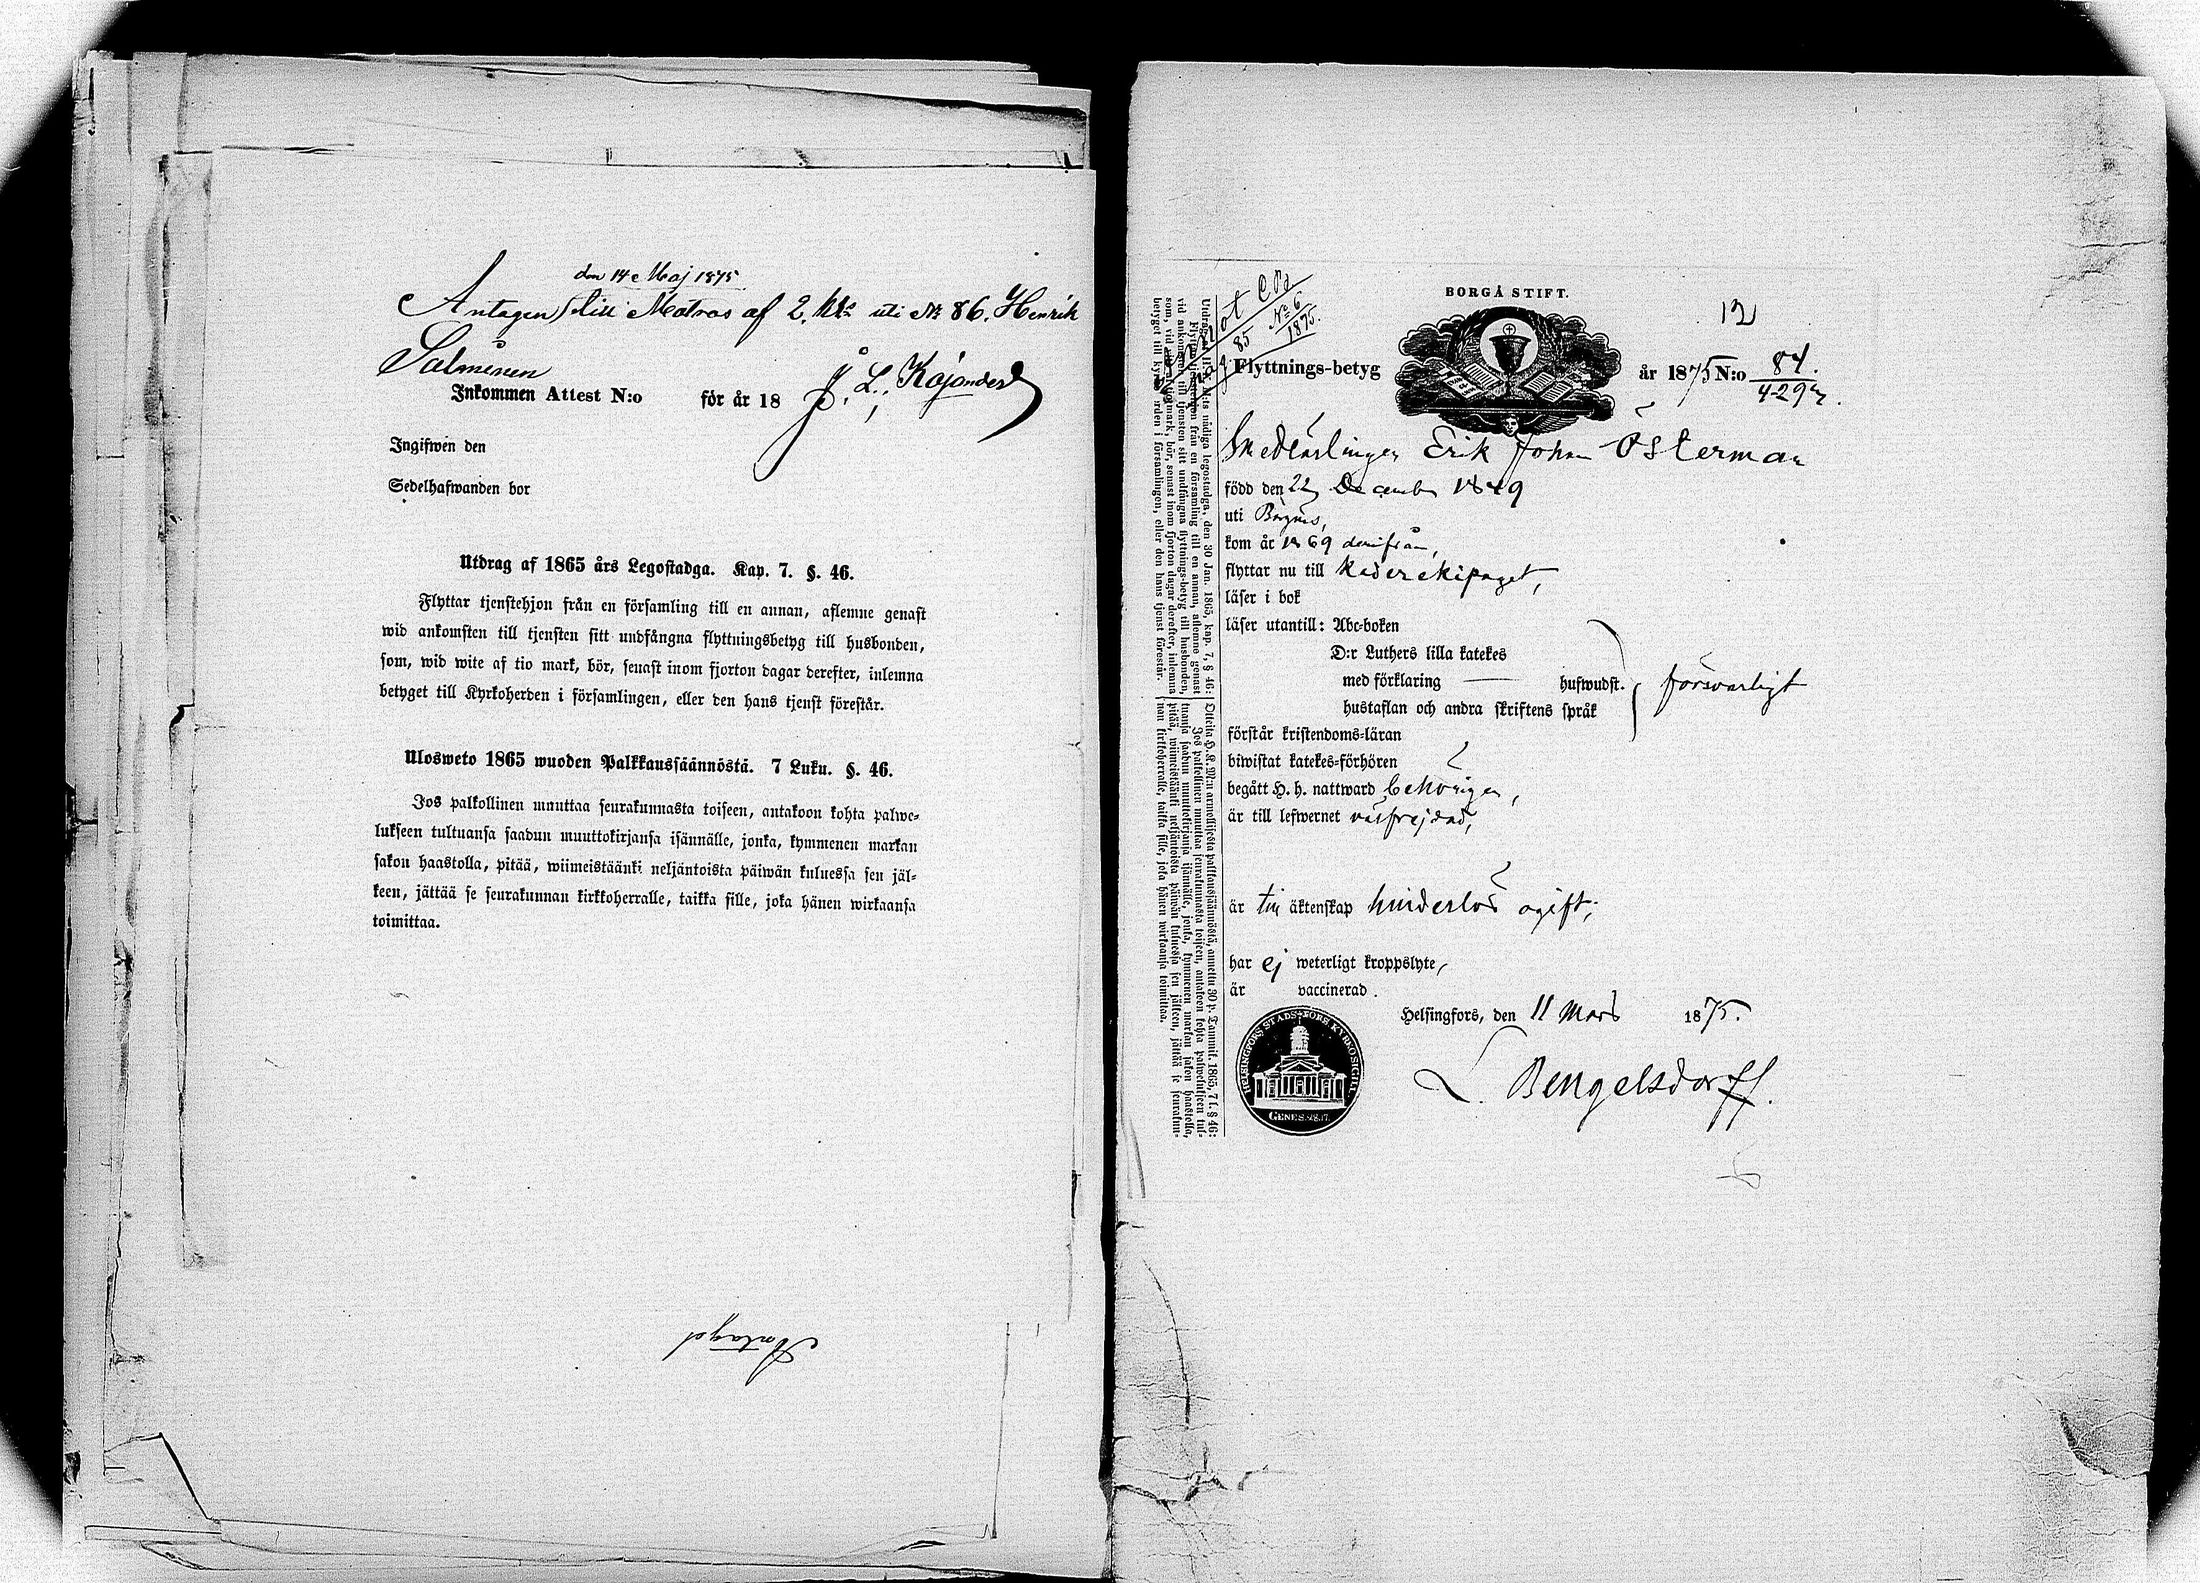 den 14 Maj 1875
Antagen till Matros af 2. kls uti № 86. Henrik
Salmenen
J. L. Kajander
Inkommen Attest N:o för år 18
Ingifwen den
Sedelhafwanden bor
Utdrag af 1865 års Legostadga. Kap. 7. §. 46.
Flyttar tjenstehjon från en församling till en annan, aflemne genast
wid ankomsten till tjensten sitt undfångna flyttningsbetyg till husbonden,
som, wid wite af tio mark, bör, senast inom fjorton dagar derefter, inlemna
betyget till Kyrkoherden i församlingen, eller den hans tjenst förestår.
Ulosweto 1865 wuoden Palkkaussäännöstä. 7 Luku. §. 46.
Jos palkollinen muuttaa seurakunnasta toiseen, antakoon kohta palwe-
lukseen tultuansa saadun muuttokirjansa isännälle, jonka, kymmenen markan
sakon haastolla, pitää, wiimeistäänki neljäntoista päiwän kuluessa sen jäl-
keen, jättää se seurakunnan kirkkoherralle, taikka sille, joka hänen wirkaansa
toimittaa.
Antaget
BORGÅ STIFT.
12
85 № 6
1875.
Flyttnings-betyg
år 1875 N:o 84.
429
Erik Johan Österman
född den 22 December 1849
uti
kom år 1869 derifrån,
flyttar nu till Kaderekipaget,
läser i bok
läser utantill: Abc-boken
D:r Luthers lilla katekes
med förklaring hufwudst.
försvarligt
hustaflan och andra skriftens språk
förstår kristendoms-läran
biwistat katekes-förhören
begått H. h. nattward behörigen,
är till lefwernet välfrejdad,
är till äktenskap hinderlös ogift;
har ej weterligt kroppslyte,
är vaccinerad.
Helsingfors, den 11 Mars 1875.
L. Bengelsdorff.
HELSINGFORS STADS-FÖRS. KYRKOSIGILL
GENES. 28. 17.
Flyttar tjenstehjon från en församling till en annan, aflemne genast
vid ankomsten till tjensten sitt undfångna flyttnings-betyg till husbonden,
betyget till kyrkoherden i församlingen, eller den hans tjenst förestår.
Otteita H. K. M:n armollisesta palkkaussäännöstä, annettu 30 p. Tammik. 1865, 7 l. § 46:
Jos palkollinen muuttaa seurakunnasta toiseen, antakoon kohta palwelukseen tul-
tuansa saadun muuttokirjansa isännälle, jonka, kymmenen markan sakon haastolla,
pitää, wiimeistäänki neljäntoista päiwän kuluessa sen jälkeen, jättää se seurakun-
nan kirkkoherralle, taikka sille, joka hänen wirkaansa toimittaa.